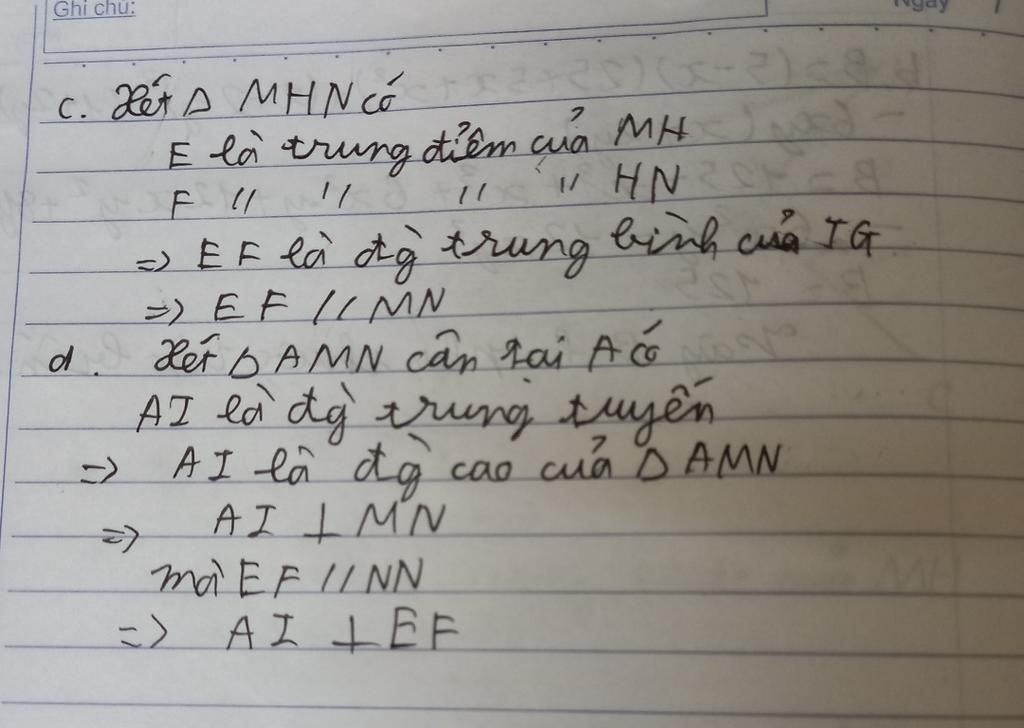 Ghi chú:
Ngày
c. Xét Δ MHN có
E là trung điểm của MH
F // // // // HN
=> EF là đg̀ trung bình của IG
=> EF // MN
d. Xét Δ AMN cân tại A có
AI là đg̀ trung tuyến
=> AI là đg̀ cao của Δ AMN
=> AI ⊥ MN
mà EF // NN
=> AI ⊥ EF